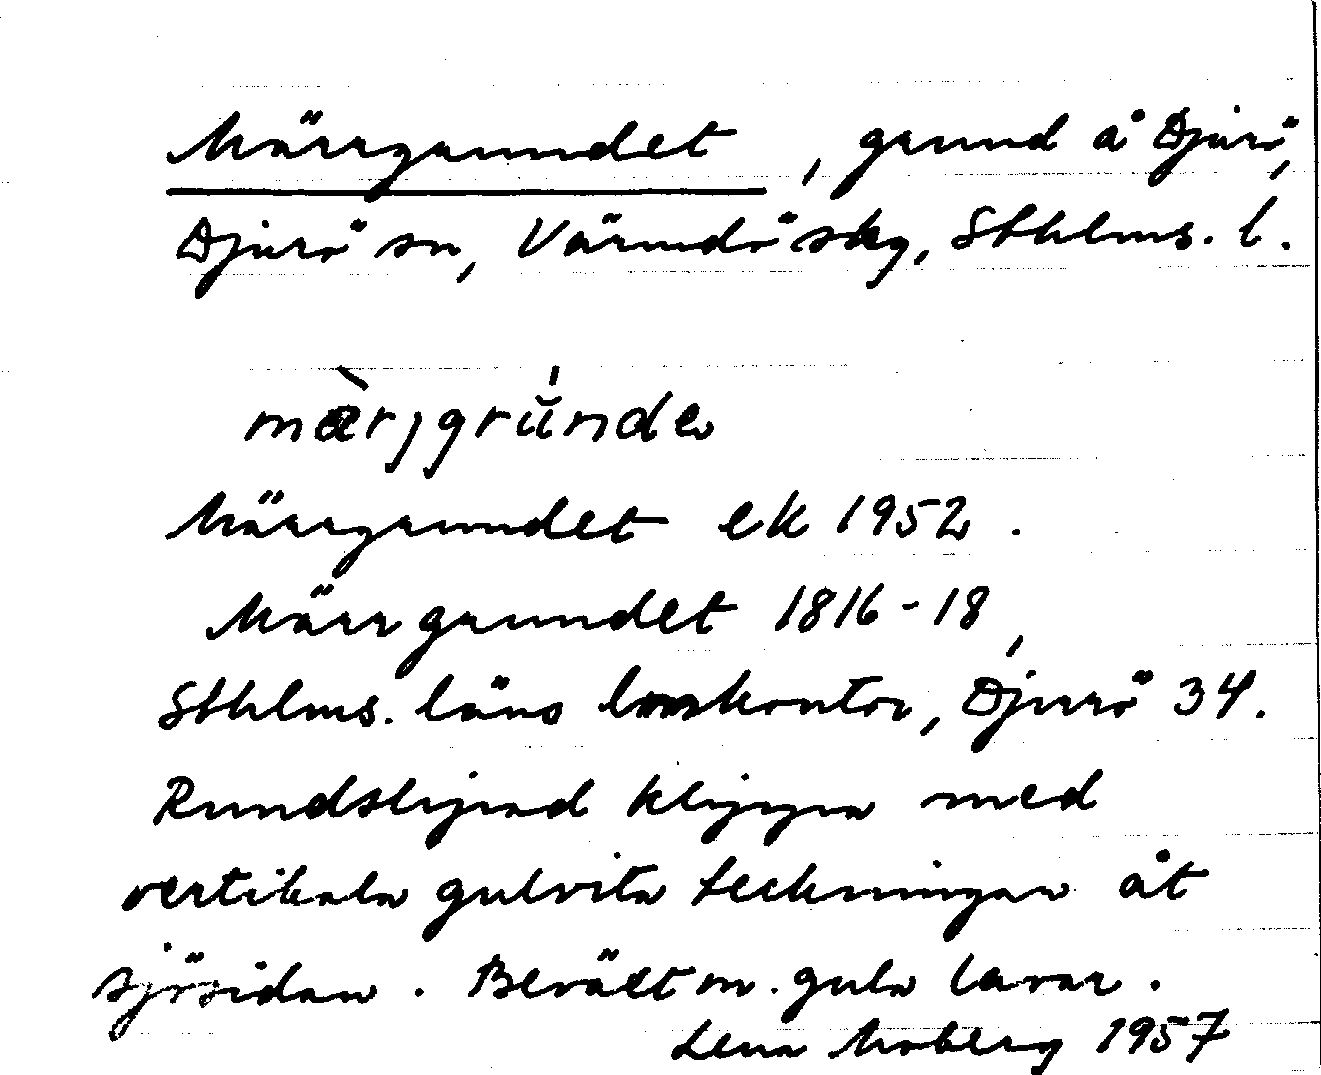 Märrgrundet, grund å Djurö,
Djurö sn, Värmdö skg, Sthlms. l.
mær̀jgrŭ́nde
Märrgrundet ek 1952.
Märrgrundet 1816-18,
Sthlms. läns lmskontor, Djurö 34.
Rundslipad klippa med
vertikala gulvita teckningar åt
sjösidan. Beväxt m. gula lavar.
Lena Moberg 1957